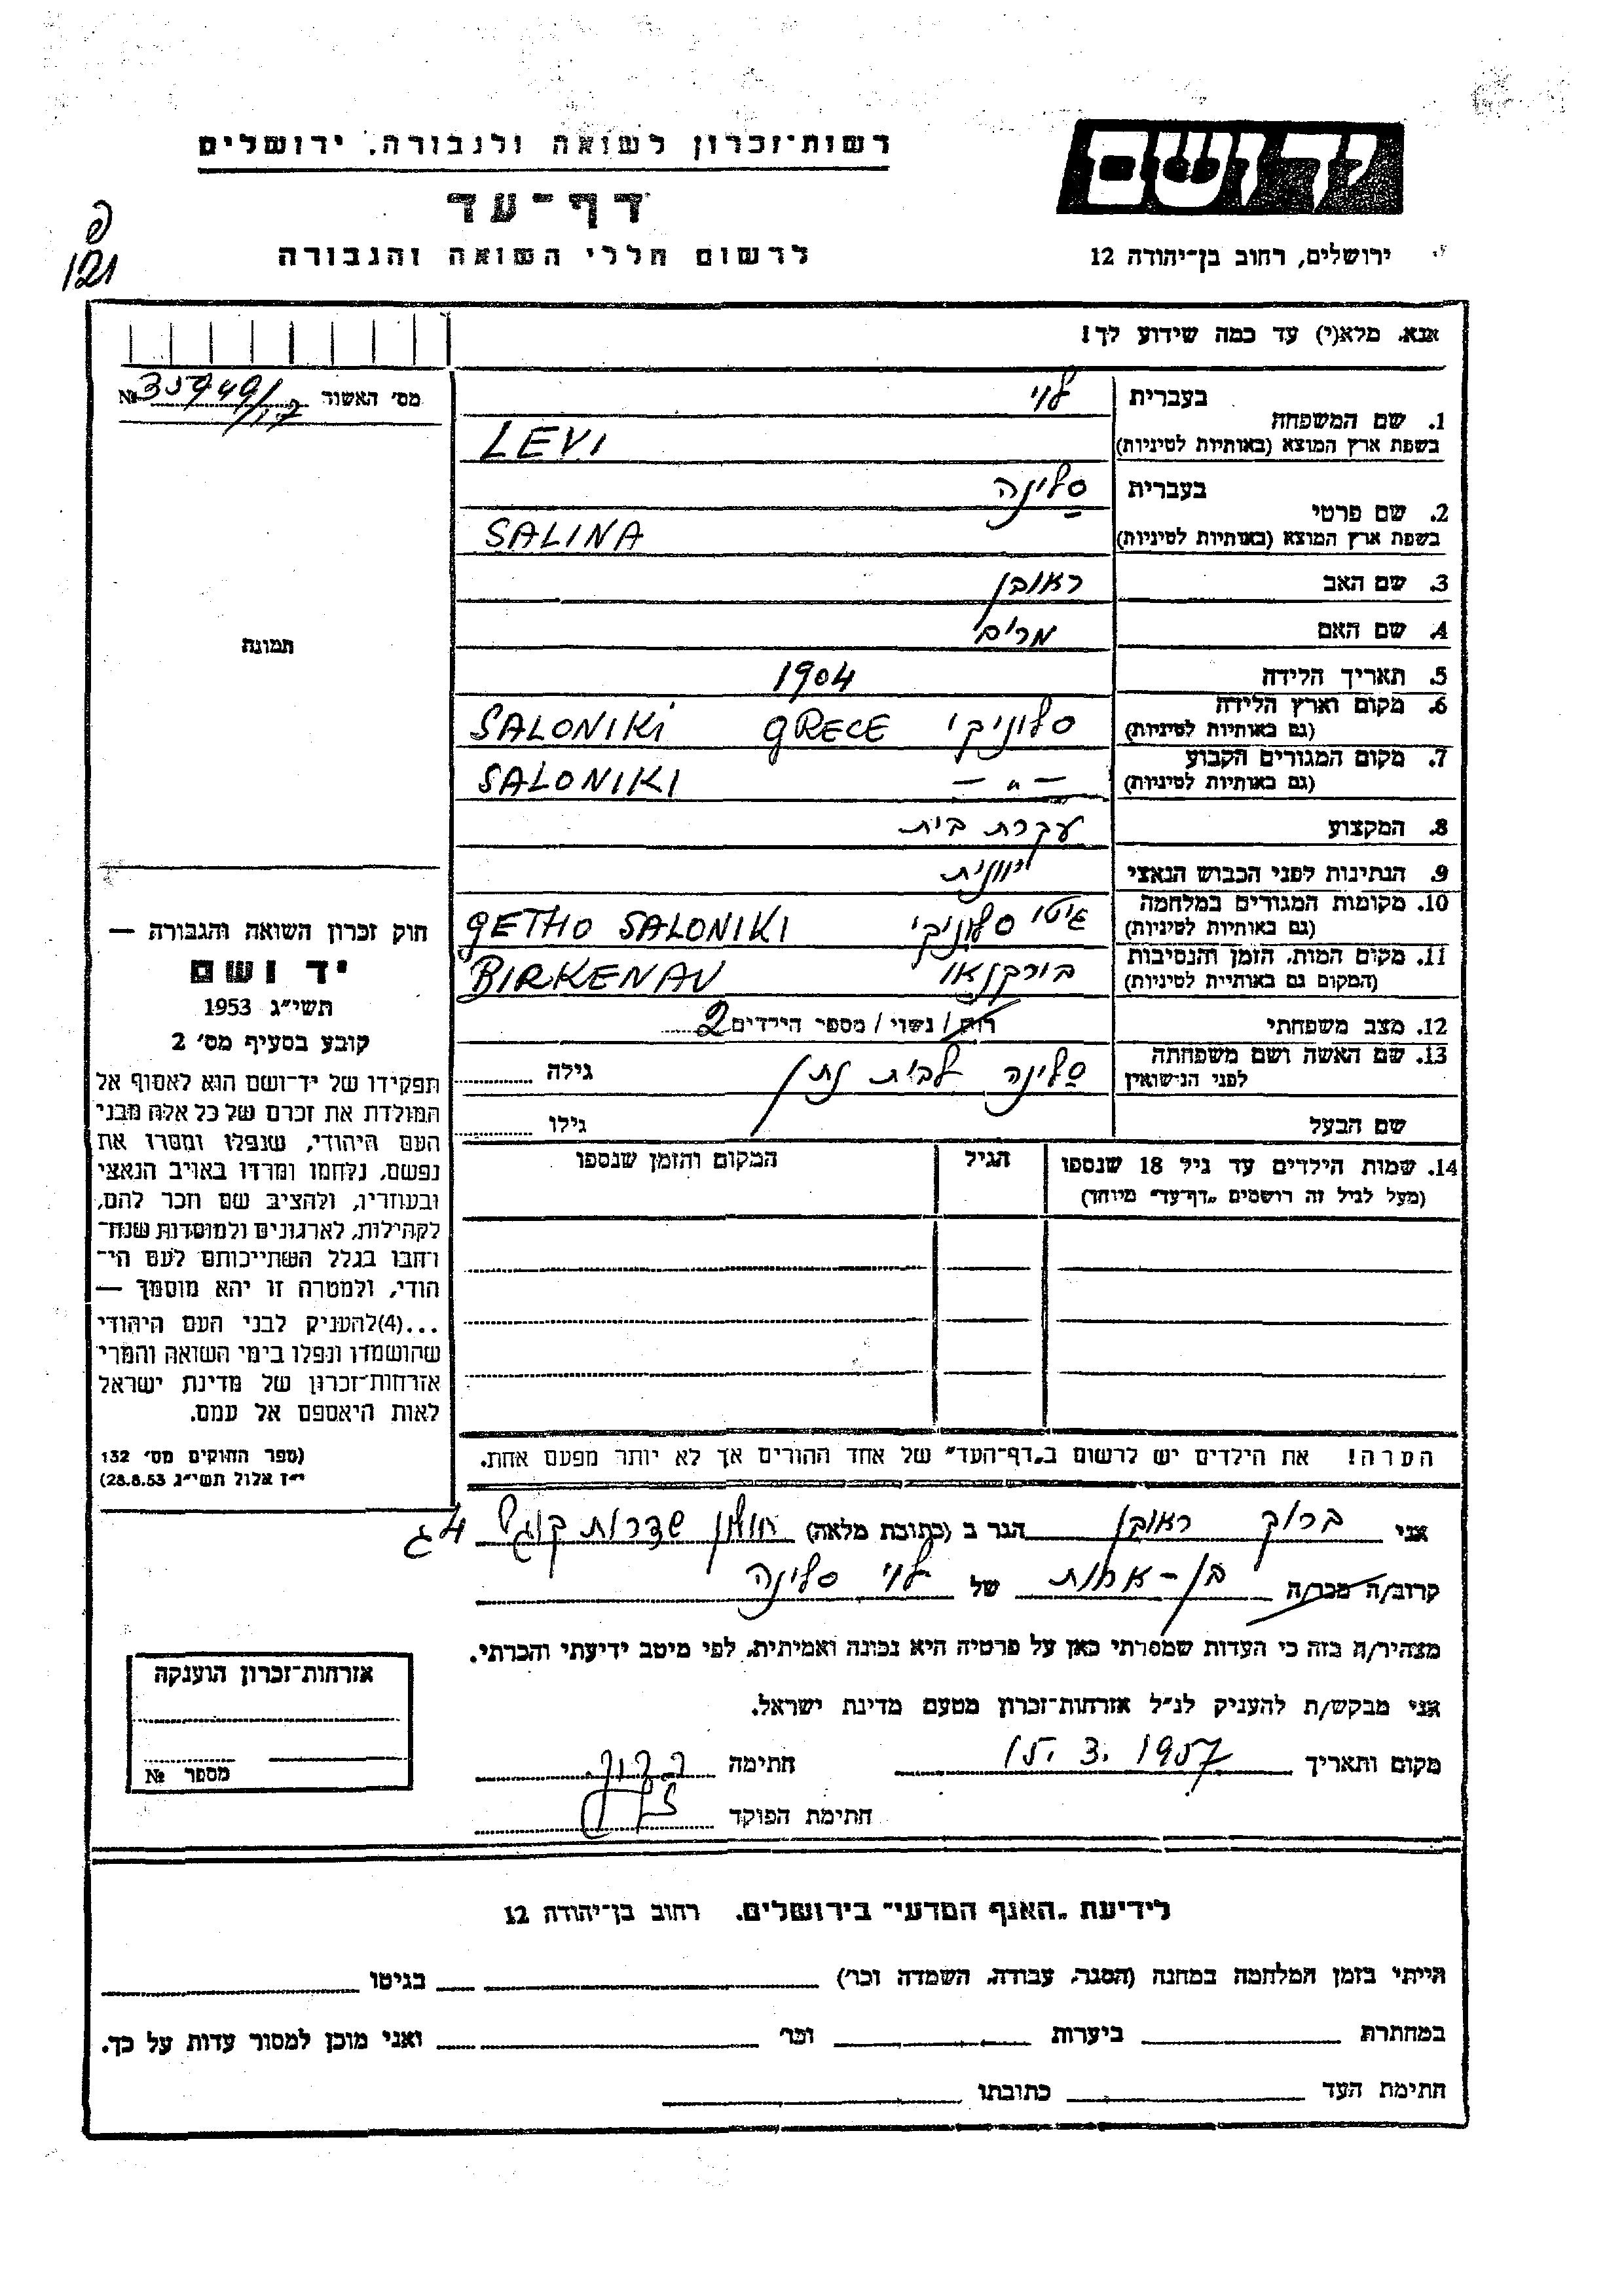 רשות־זכרון לשואה ולגבורה, ירושלים
יד ושם
דף־עד
לרשום חללי השואה והגבורה
ירושלים, רחוב בן־יהודה 12
פ
121
אנא, מלא(י) עד כמה שידוע לך!
מס' האשור
1. שם המשפחה בעברית לוי
בשפת ארץ המוצא (באותיות לטיניות) LEVI
2. שם פרטי בעברית סלינה
בשפת ארץ המוצא (באותיות לטיניות) SALINA
3. שם האב ראובן
4. שם האם מרים
תמונה
5. תאריך הלידה 1904
6. מקום וארץ הלידה (גם באותיות לטיניות) סלוניקי GRECE SALONIKI
7. מקום המגורים הקבוע (גם באותיות לטיניות) — " — SALONIKI
8. המקצוע עקרת בית
9. הנתינות לפני הכבוש הנאצי יוונית
10. מקומות המגורים במלחמה (גם באותיות לטיניות) גיטו סלוניקי GETHO SALONIKI
11. מקום המות, הזמן והנסיבות (המקום גם באותיות לטיניות) בירקנאו BIRKENAU
12. מצב משפחתי רווק / נשוי / מספר הילדים 2
13. שם האשה ושם משפחתה לפני הנישואין סלינה לבית נתן גילה
שם הבעל גילו
14. שמות הילדים עד גיל 18 שנספו
(מעל לגיל זה רושמים „דף־עד" מיוחד)
הגיל
המקום והזמן שנספו
חוק זכרון השואה והגבורה —
יד ושם
תשי"ג 1953
קובע בסעיף מס' 2
תפקידו של יד־ושם הוא לאסוף אל
המולדת את זכרם של כל אלה מבני
העם היהודי, שנפלו ומסרו את
נפשם, נלחמו ומרדו באויב הנאצי
ובעוזריו, ולהציב שם וזכר להם,
לקהילות, לארגונים ולמוסדות שנח־
רבו בגלל השתייכותם לעם הי־
הודי, ולמטרה זו יהא מוסמך —
...(4)להעניק לבני העם היהודי
שהושמדו ונפלו בימי השואה והמרי
אזרחות־זכרון של מדינת ישראל
לאות היאספם אל עמם.
(ספר החוקים מס' 132
י"ז אלול תשי"ג 28.8.53)
הערה! את הילדים יש לרשום ב„דף־העד" של אחד ההורים אך לא יותר מפעם אחת.
אני ברוך ראובן הגר ב (כתובת מלאה) חולון שדרות קוגל 4 ג
קרוב/ה מכר/ה בן-אחות של לוי סלינה
מצהיר/ה בזה כי העדות שמסרתי כאן על פרטיה היא נכונה ואמיתית, לפי מיטב ידיעתי והכרתי.
אני מבקש/ת להעניק לנ"ל אזרחות־זכרון מטעם מדינת ישראל.
מקום ותאריך 15. 3. 1957 חתימה ברוך
חתימת הפוקד
אזרחות־זכרון הוענקה
מספר №
לידיעת „האגף המדעי" בירושלים, רחוב בן־יהודה 12
הייתי בזמן המלחמה במחנה (הסגר, עבודה, השמדה וכו') בגיטו
במחתרת ביערות וכו' ואני מוכן למסור עדות על כך.
חתימת העד כתובתו